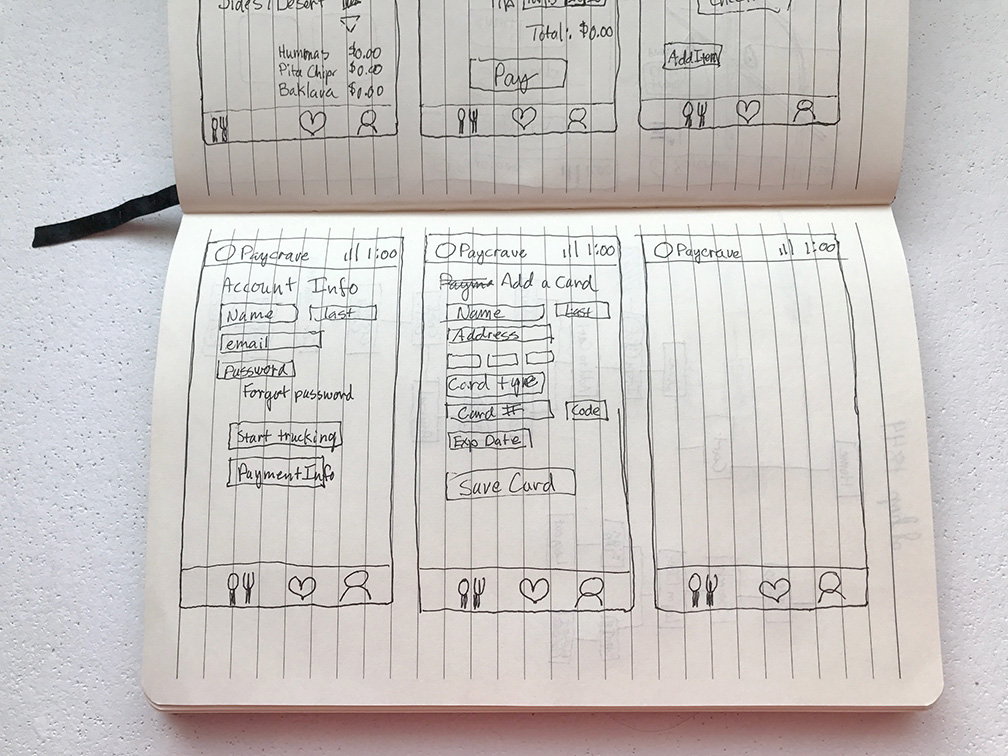 Sides / Desert
Hummas $0.00
Pita Chips $0.00
Baklava $0.00
Total: $0.00
Pay
Add Item
Paycrave 1:00
Account Info
Name last
email
Password
Forgot password
Start trucking
Payment Info
Paycrave 1:00
Add a Card
Name Last
Address
Card type
Card # Code
Exp Date
Save Card
Paycrave 1:00